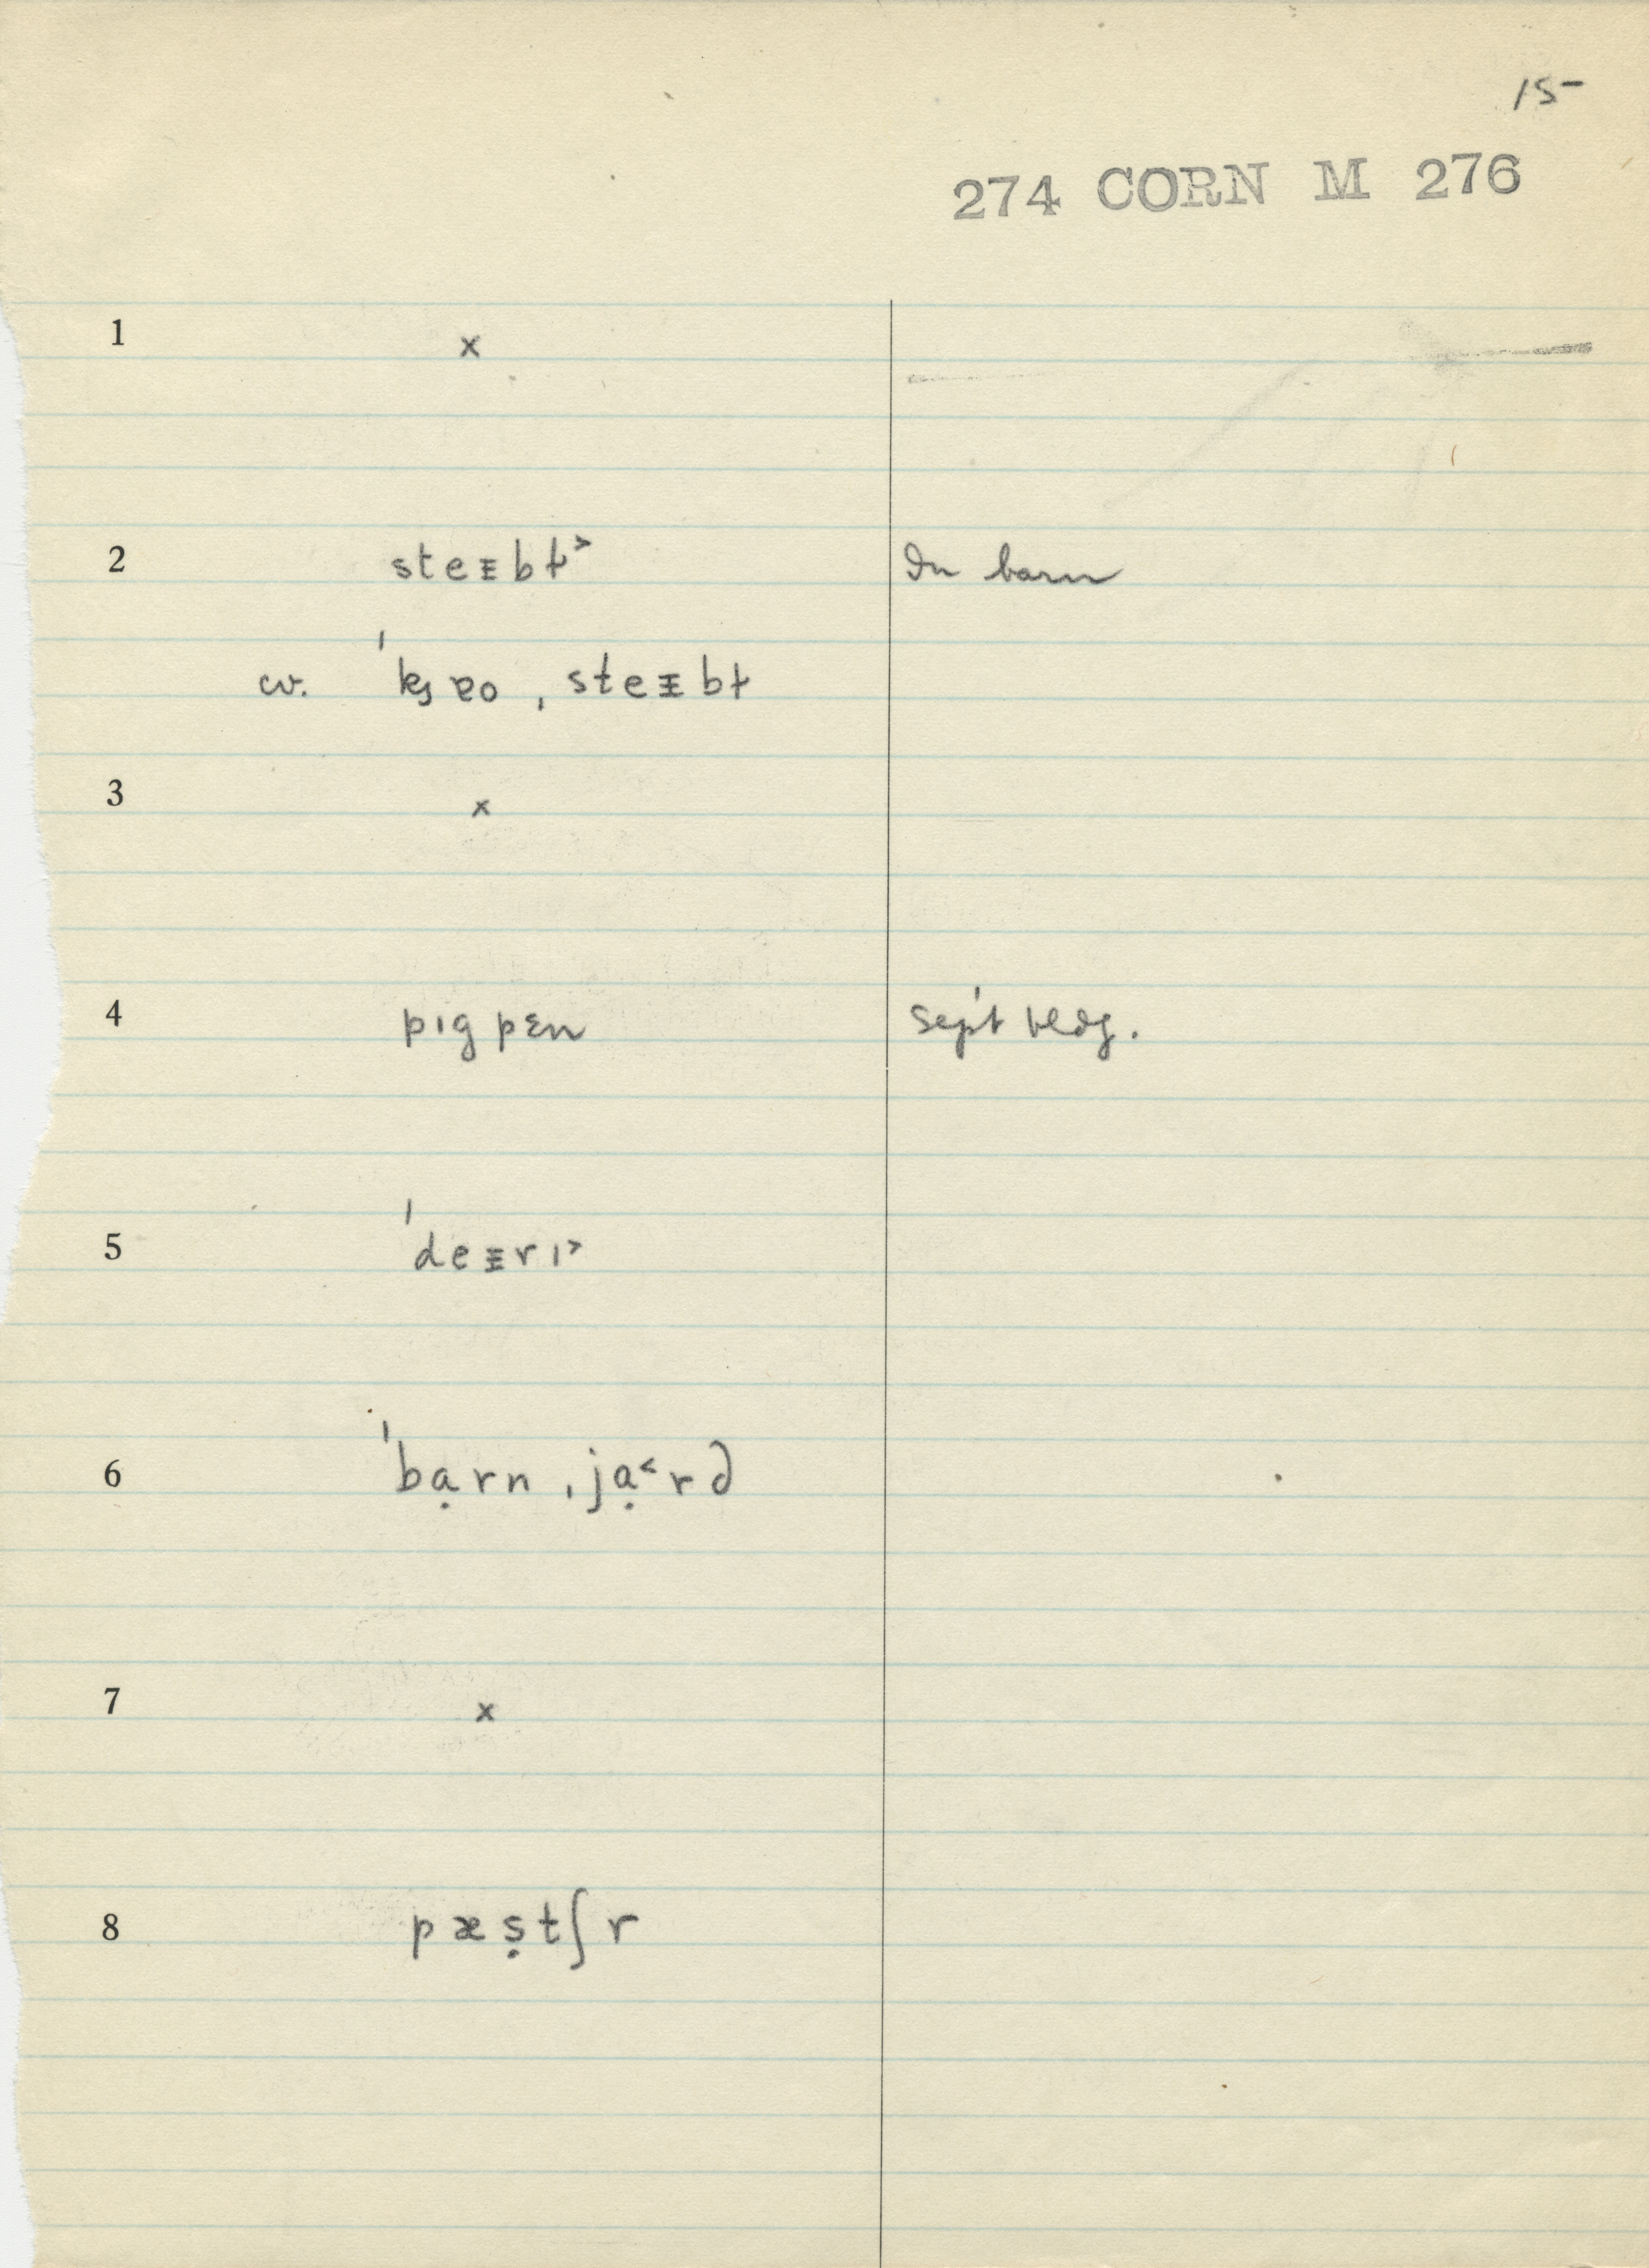 15
274 CORN M 276
1 x
2 steᵻbɫ˃ In barn
cv. ˈkʒɐo ˌsteᵻbɫ
3 x
4 pɪgpɛn sep't bldg.
5 ˈdeᵻrɪ˃
6 ˈbạrn ˌjạ˂rd
7 x
8 pæṣtʃr